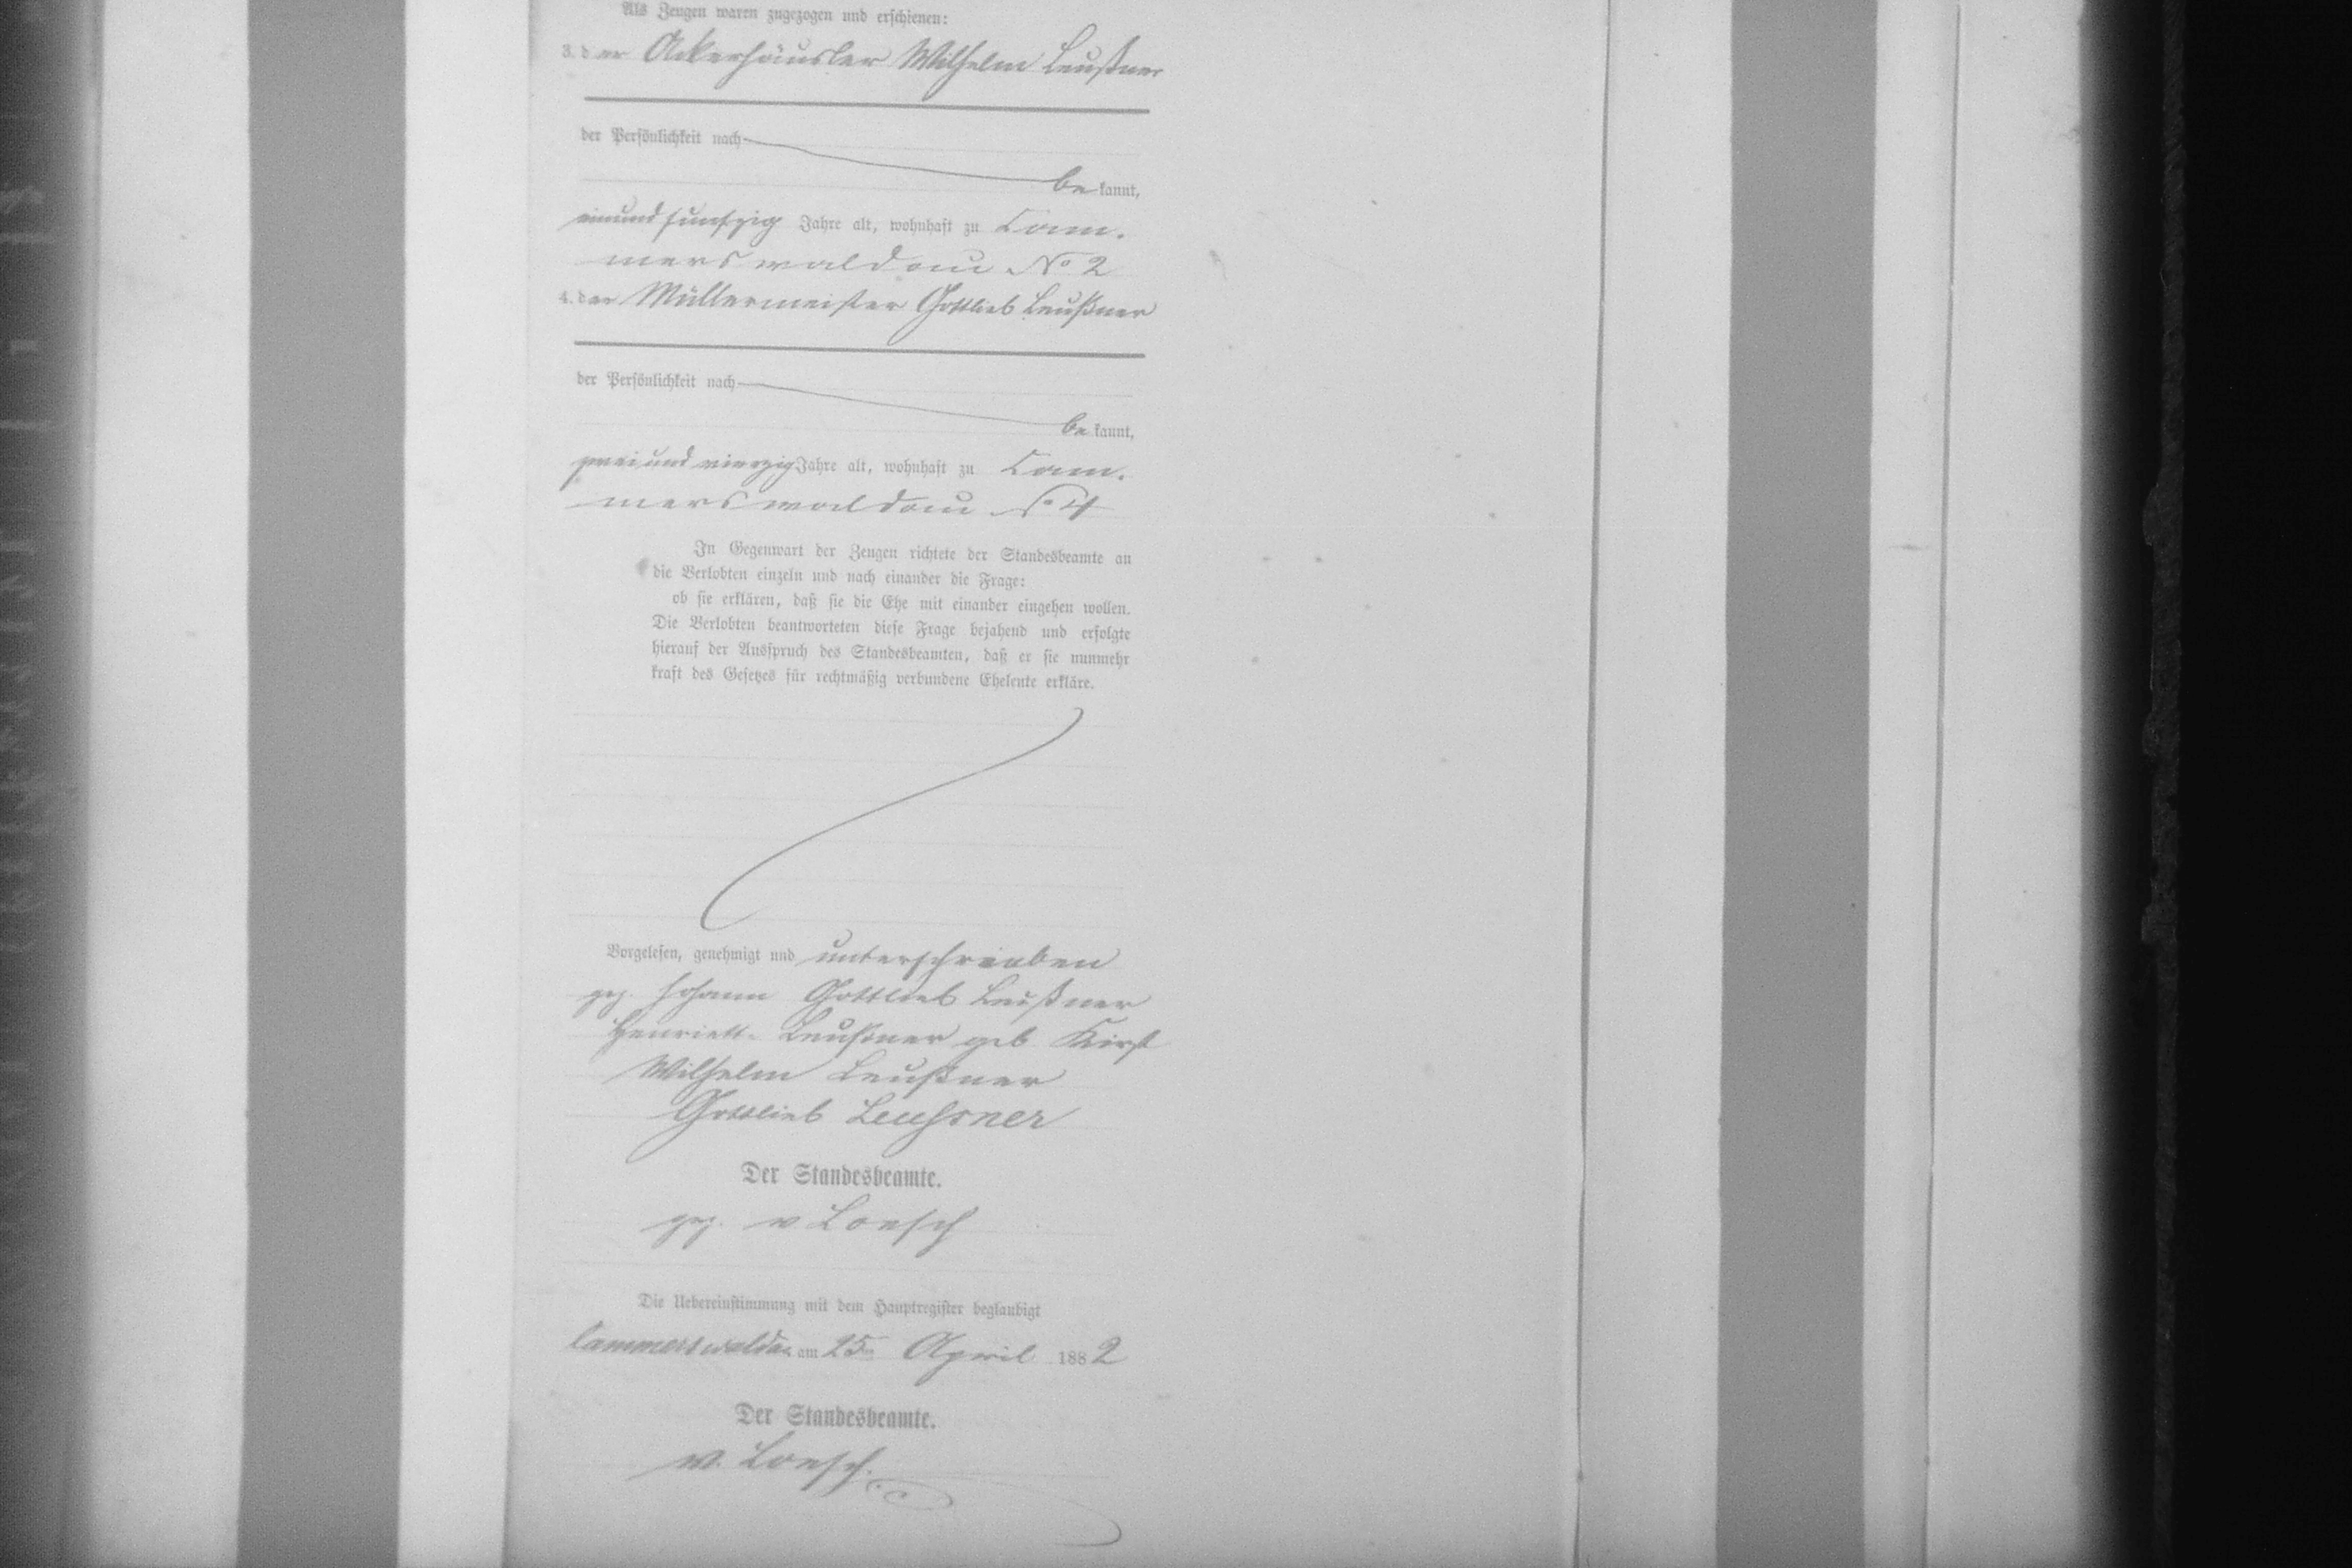 Als Zeugen waren zugezogen und erschienen:
3. der Ackerhäusler Wilhelm Leußner
der Persönlichkeit nach
be kannt,
einundfünfzig Jahre alt, wohnhaft zu Cam.
merswaldau No 2
4. der Müllermeister Gottlieb Leußner
der Persönlichkeit nach
be kannt,
zweiundvierzig Jahre alt, wohnhaft zu Cam.
merswaldau No 4
In Gegenwart der Zeugen richtete der Standesbeamte an
die Verlobten einzeln und nach einander die Frage:
ob sie erklären, daß sie die Ehe mit einander eingehen wollen.
Die Verlobten beantworteten diese Frage bejahend und erfolgte
hierauf der Ausspruch des Standesbeamten, daß er sie nunmehr
kraft des Gesetzes für rechtmäßig verbundene Eheleute erkläre.
Vorgelesen, genehmigt und unterschrieben
gez. Johann Gottlieb Leußner
Henriette Leußner geb Kirst
Wilhelm Leußner
Gottlieb Leussner
Der Standesbeamte.
gez. v Loesch
Die Uebereinstimmung mit dem Hauptregister beglaubigt
Cammerswaldau am 25ten April 1882
Der Standesbeamte.
v. Loesch.